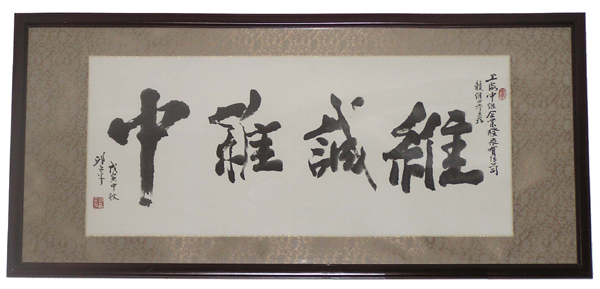 上海中維企業發展有限公司
維誠維中
戊寅中秋